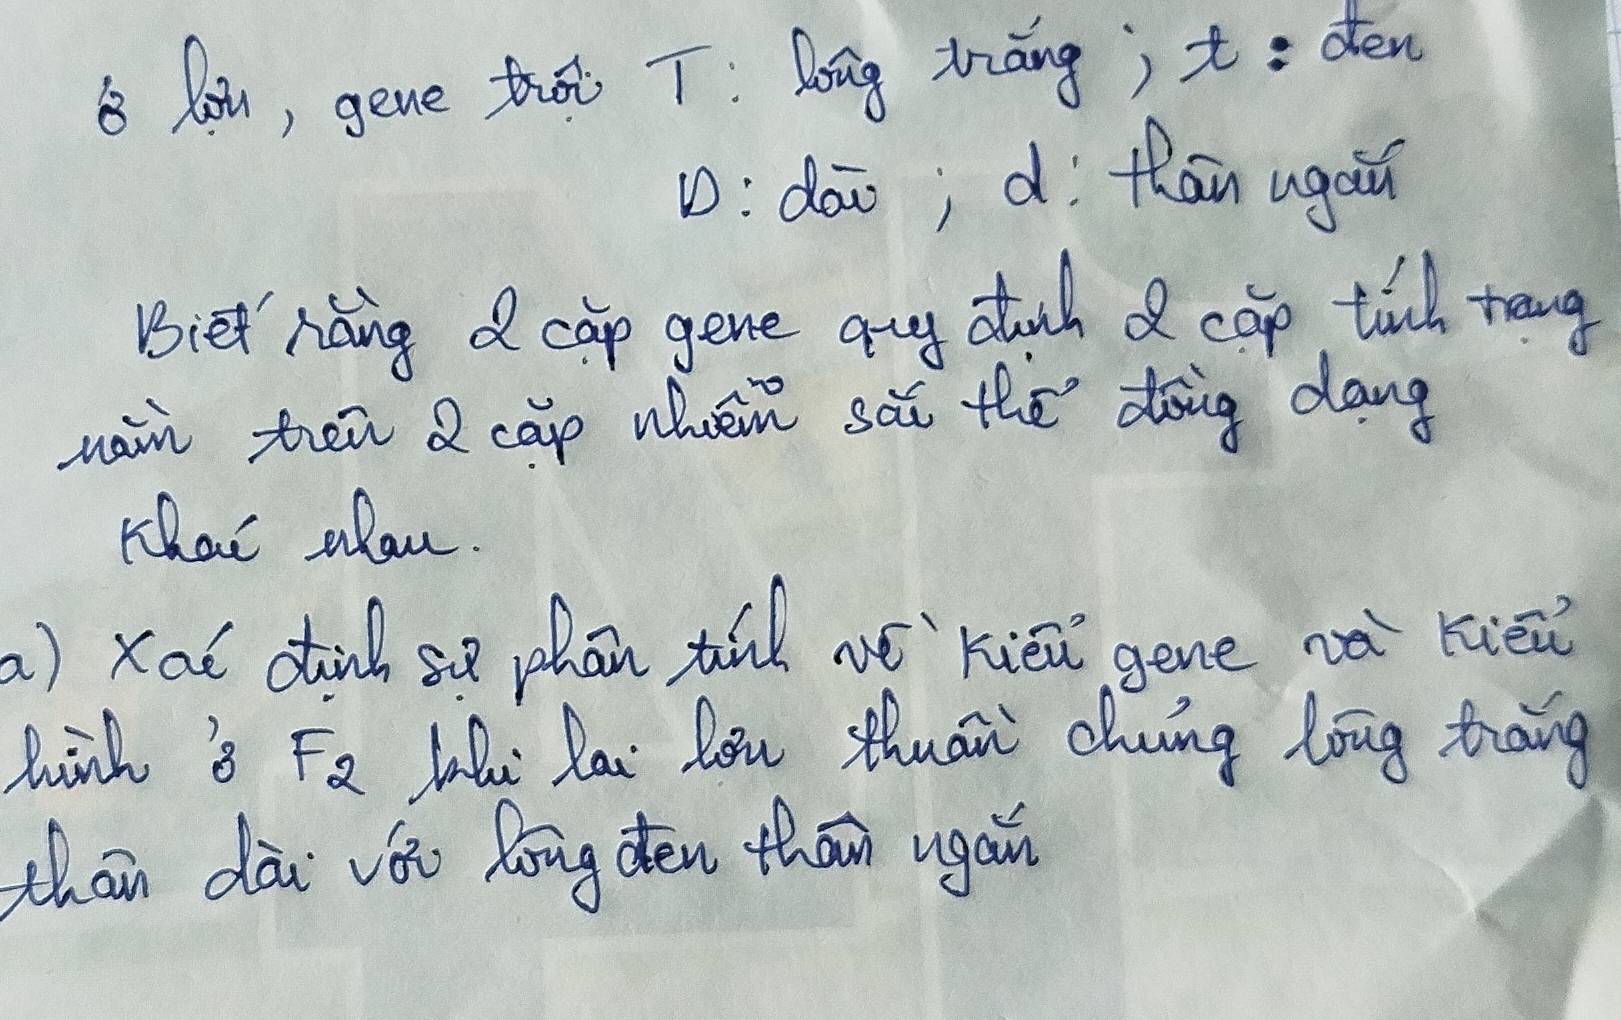 ở lợn, gene trội T: lông trắng; t: đen
D: dài; d: thân ngắn
Biết rằng 2 cặp gene quy định 2 cặp tính trạng
nằm trên 2 cặp nhiễm sắc thể đồng dạng
khác nhau.
a) Xác định sự phân tính về kiểu gene và kiểu
hình ở F2 khi lai lợn thuần chủng lông trắng
thân dài với lông đen thân ngắn